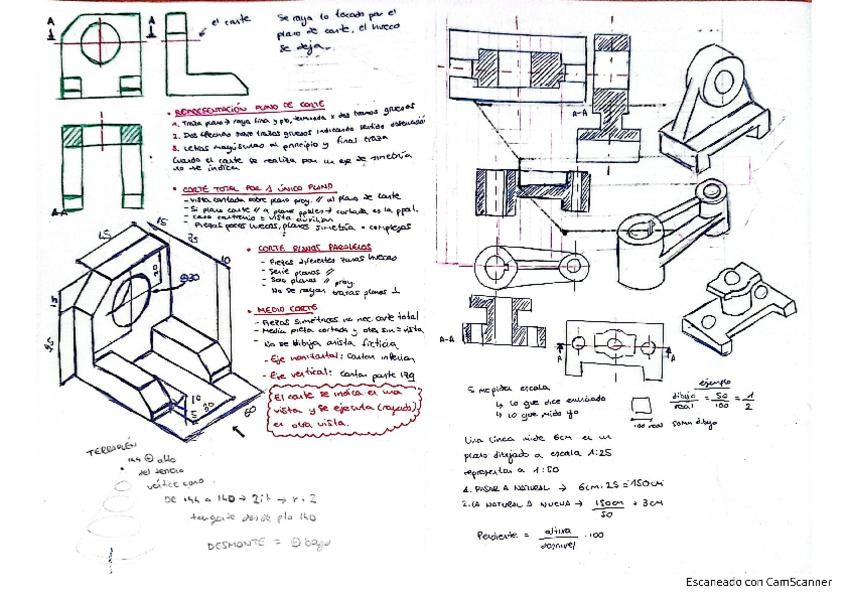 A
A
el corte
Se raya lo tocado por el
plano de corte, el hueco
se deja.
• REPRESENTACIÓN PLANO DE CORTE
1. Traza plano → raya fina y pto, terminada x dos tramos gruesos
2. Dos flechas sobre trazos gruesos indicando sentido observación
3. Letras mayúsculas al principio y final traza
Cuando el corte se realiza por un eje de simetría
no se indica
A-A
• CORTE TOTAL POR 1 ÚNICO PLANO
- Vista cortada sobre plano proy. // al plano de corte
- Si plano corte // a plano ppales → cortada es la ppal.
- Caso contrario = vista auxiliar
- Piezas pocos huecos, planos simetría + complejas
• CORTE PLANOS PARALELOS
- Piezas diferentes zonas huecas
- Serie planos //
- Solo planos // proy.
No se rayan trazas planos ⊥
• MEDIO CORTE
- Piezas simétricas no nec. corte total
- Media pieza cortada y otra sin = vista
- No se dibuja arista ficticia
- Eje horizontal: Cortan inferior
- Eje vertical: Cortan parte izq
El corte se indica en una
vista y se ejecuta (rayado)
en otra vista.
15
25
10
Ø30
10
60
TERRAPLÉN
144 ⊕ alto
del terreno
vértice cono
DE 144 a 140 → 2i't → r. 2
tangente desde pto 140
DESMONTE = ⊖ bajo
A-A
A-A
A
A
5 medidas escala
↳ lo que dice enunciado
↳ lo que mido yo
ejemplo
dibujo/real = 50/100 = 1/2
100 real
50mm dibujo
Una línea mide 6cm en un
plano dibujado a escala 1:25
representar a 1:50
1. PASAR A NATURAL → 6cm·25 = 150cm
2. LA NATURAL A NUEVA → 150cm/50 = 3cm
Pendiente = altura/desnivel · 100
Escaneado con CamScanner